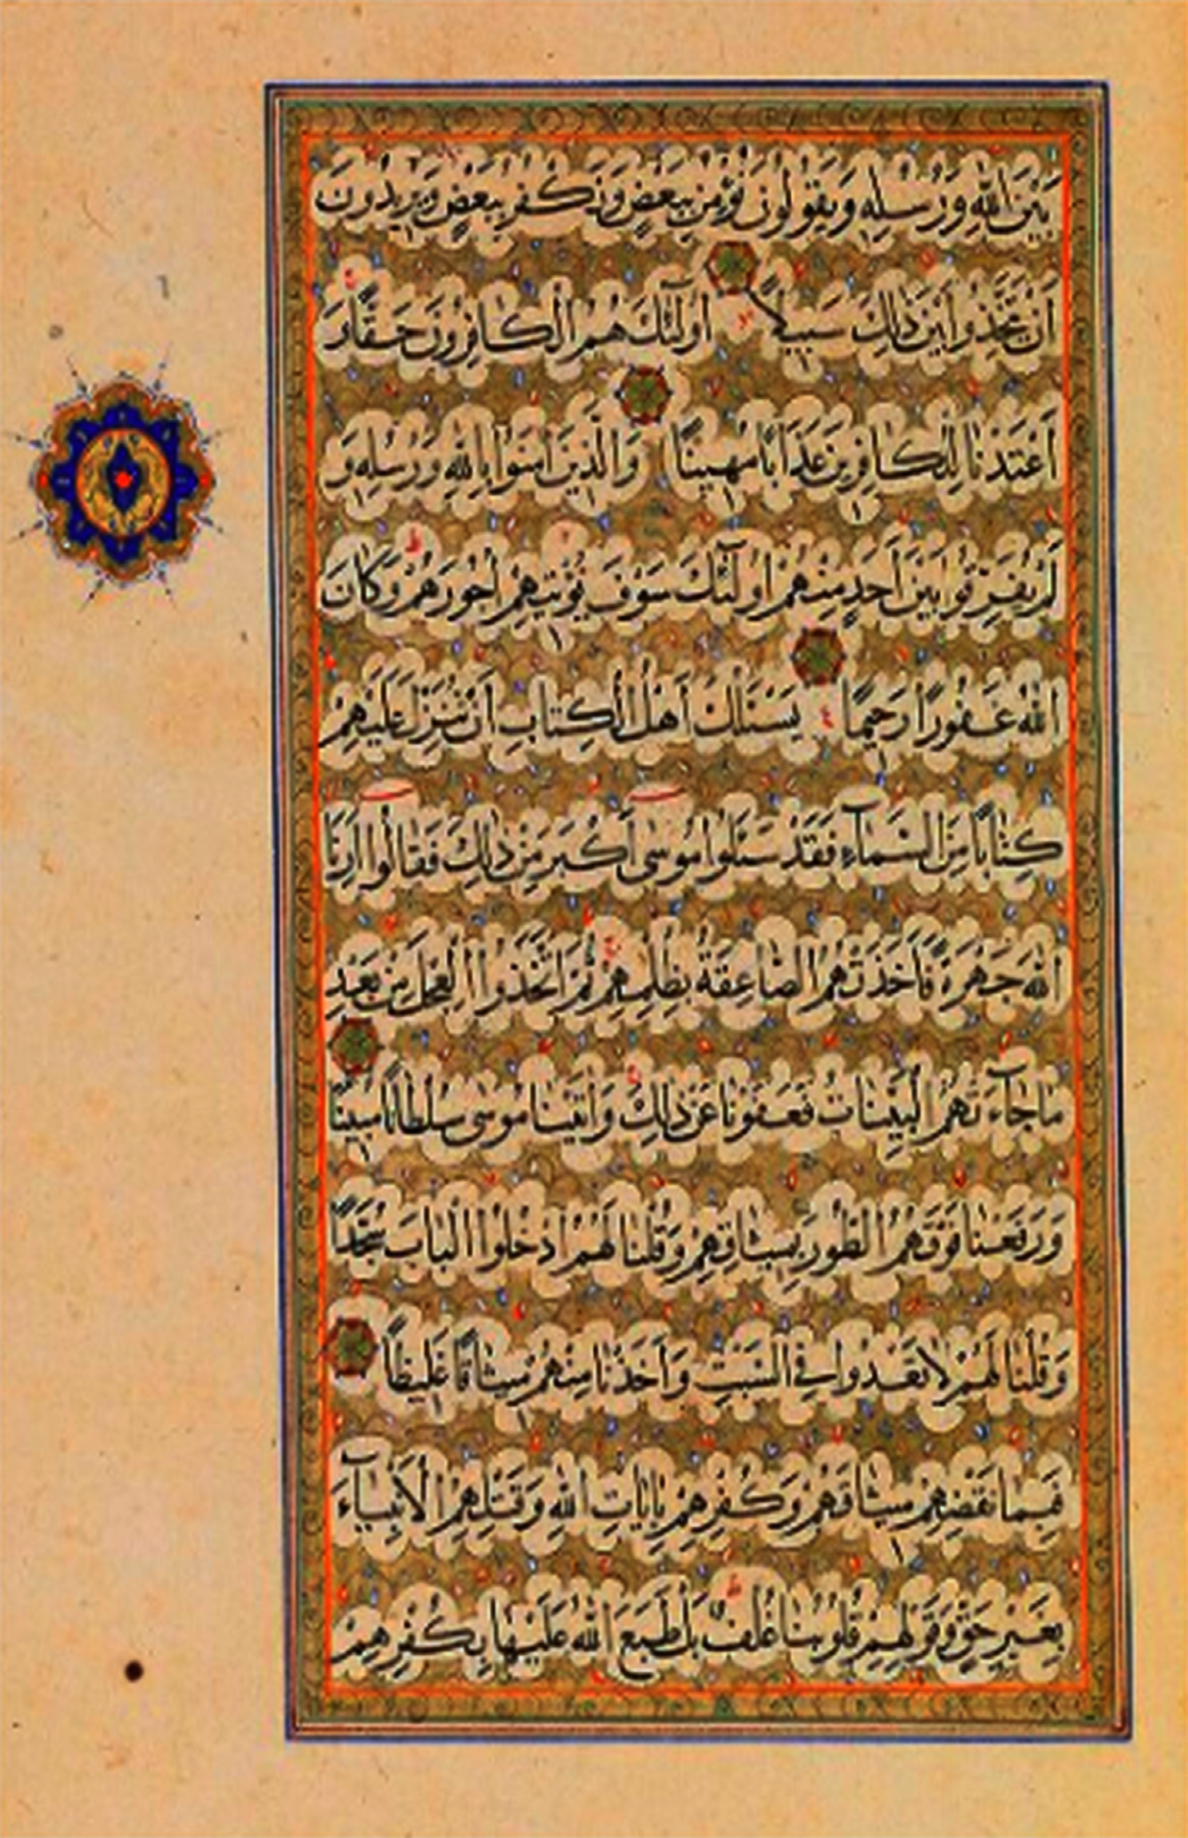 بَيْنَ اللّٰهِ وَرُسُلِهِ وَيَقُولُونَ نُؤْمِنُ بِبَعْضٍ وَنَكْفُرُ بِبَعْضٍ وَيُرِيدُونَ
أَنْ يَتَّخِذُوا بَيْنَ ذَلِكَ سَبِيلًا أُولَٓئِكَ هُمُ الْكَافِرُونَ حَقًّا وَ
أَعْتَدْنَا لِلْكَافِرِينَ عَذَابًا مُهِينًا وَالَّذِينَ اٰمَنُوا بِاللّٰهِ وَرُسُلِهِ وَ
لَمْ يُفَرِّقُوا بَيْنَ أَحَدٍ مِنْهُمْ أُولَٓئِكَ سَوْفَ يُؤْتِيهِمْ أُجُورَهُمْ وَكَانَ
اللّٰهُ غَفُورًا رَحِيمًا يَسْئَلُكَ أَهْلُ الْكِتَابِ أَنْ تُنَزِّلَ عَلَيْهِمْ
كِتَابًا مِنَ السَّمَآءِ فَقَدْ سَئَلُوا مُوسَى أَكْبَرَ مِنْ ذَلِكَ فَقَالُوا أَرِنَا
اللّٰهَ جَهْرَةً فَأَخَذَتْهُمُ الصَّاعِقَةُ بِظُلْمِهِمْ ثُمَّ اتَّخَذُوا الْعِجْلَ مِنْ بَعْدِ
مَا جَآءَتْهُمُ الْبَيِّنَاتُ فَعَفَوْنَا عَنْ ذَلِكَ وَاٰتَيْنَا مُوسَى سُلْطَانًا مُبِينًا
وَرَفَعْنَا فَوْقَهُمُ الطُّورَ بِمِيثَاقِهِمْ وَقُلْنَا لَهُمُ ادْخُلُوا الْبَابَ سُجَّدًا
وَقُلْنَا لَهُمْ لَا تَعْدُوا فِي السَّبْتِ وَأَخَذْنَا مِنْهُمْ مِيثَاقًا غَلِيظًا
فَبِمَا نَقْضِهِمْ مِيثَاقَهُمْ وَكُفْرِهِمْ بِاٰيَاتِ اللّٰهِ وَقَتْلِهِمُ الْأَنْبِيَآءَ
بِغَيْرِ حَقٍّ وَقَوْلِهِمْ قُلُوبُنَا غُلْفٌ بَلْ طَبَعَ اللّٰهُ عَلَيْهَا بِكُفْرِهِمْ